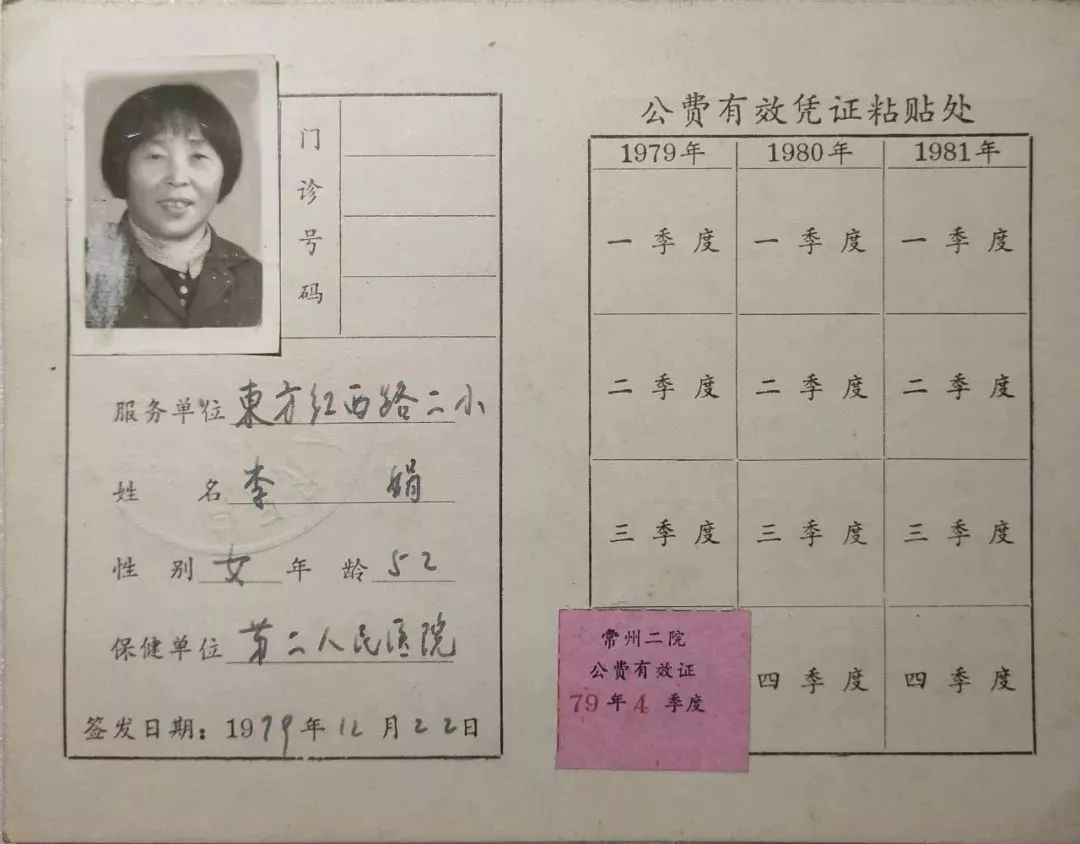 门诊号码
服务单位 東方红西路二小
姓 名 李 娟
性 别 女 年 龄 52
保健单位 第二人民医院
签发日期：1979年12月22日
公费有效凭证粘贴处
1979年 1980年 1981年
一季度 一季度 一季度
二季度 二季度 二季度
三季度 三季度 三季度
四季度 四季度
常州二院
公费有效证
79年4季度